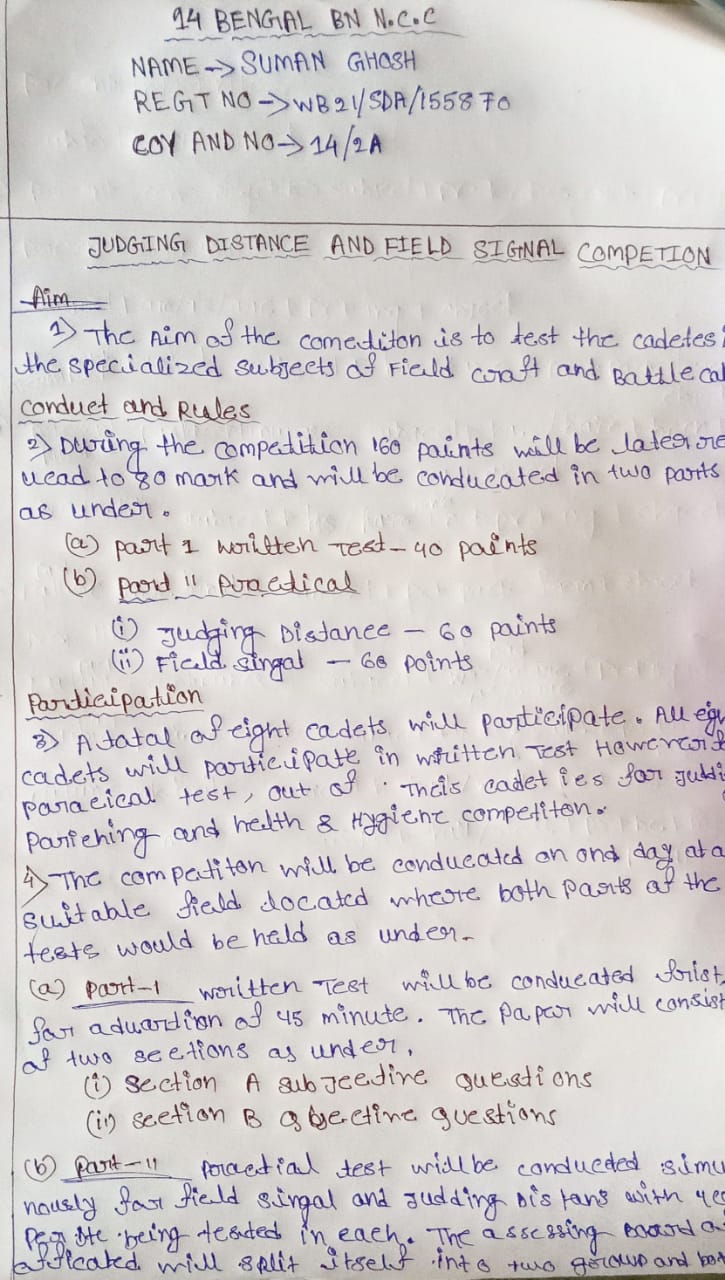 14 BENGAL BN N.C.C
NAME -> SUMAN GHOSH
REGT NO -> WB21/SDA/155870
COY AND NO -> 14/2A
JUDGING DISTANCE AND FIELD SIGNAL COMPETION
Aim
1) The Aim of the comediton is to test the cadetes
the specialized subjects of Field craft and Battle
conduct and Rules
2) During the competition 160 points will be later
to 80 mark and will be conducated in two parts
as under.
(a) part 1 written Test - 40 points
(b) part II Practical
(i) Judging Distance - 60 points
(ii) Field singal - 60 points
Participation
3) A total of eight cadets will participate. All
cadets will participate in written Test However
test, out of. Theis cadet ies for
and helth & Hygiene competiton.
4) The competiton will be conducated on one day at a
suitable field located where both parts of the
tests would be held as under.
(a) part-1 written Test will be conducated frist
for aduardion of 45 minute. The papar will consist
of two sections as under,
(i) section A subjective questions
(ii) section B objective questions
(b) part-II practial test will be conducted
nously for field singal and Judding Distans with
being tested in each. The assessing Board
will split itself into two group and